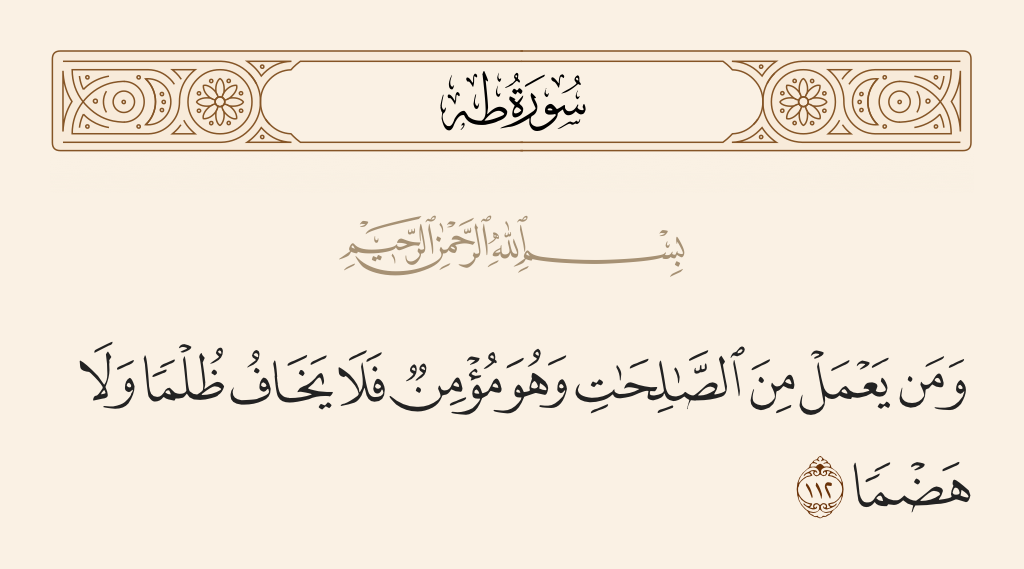 سُورَةُ طه
بِسْمِ ٱللَّهِ ٱلرَّحْمَٰنِ ٱلرَّحِيمِ
وَمَن يَعْمَلْ مِنَ ٱلصَّٰلِحَٰتِ وَهُوَ مُؤْمِنٌ فَلَا يَخَافُ ظُلْمًا وَلَا
هَضْمًا ١١٢